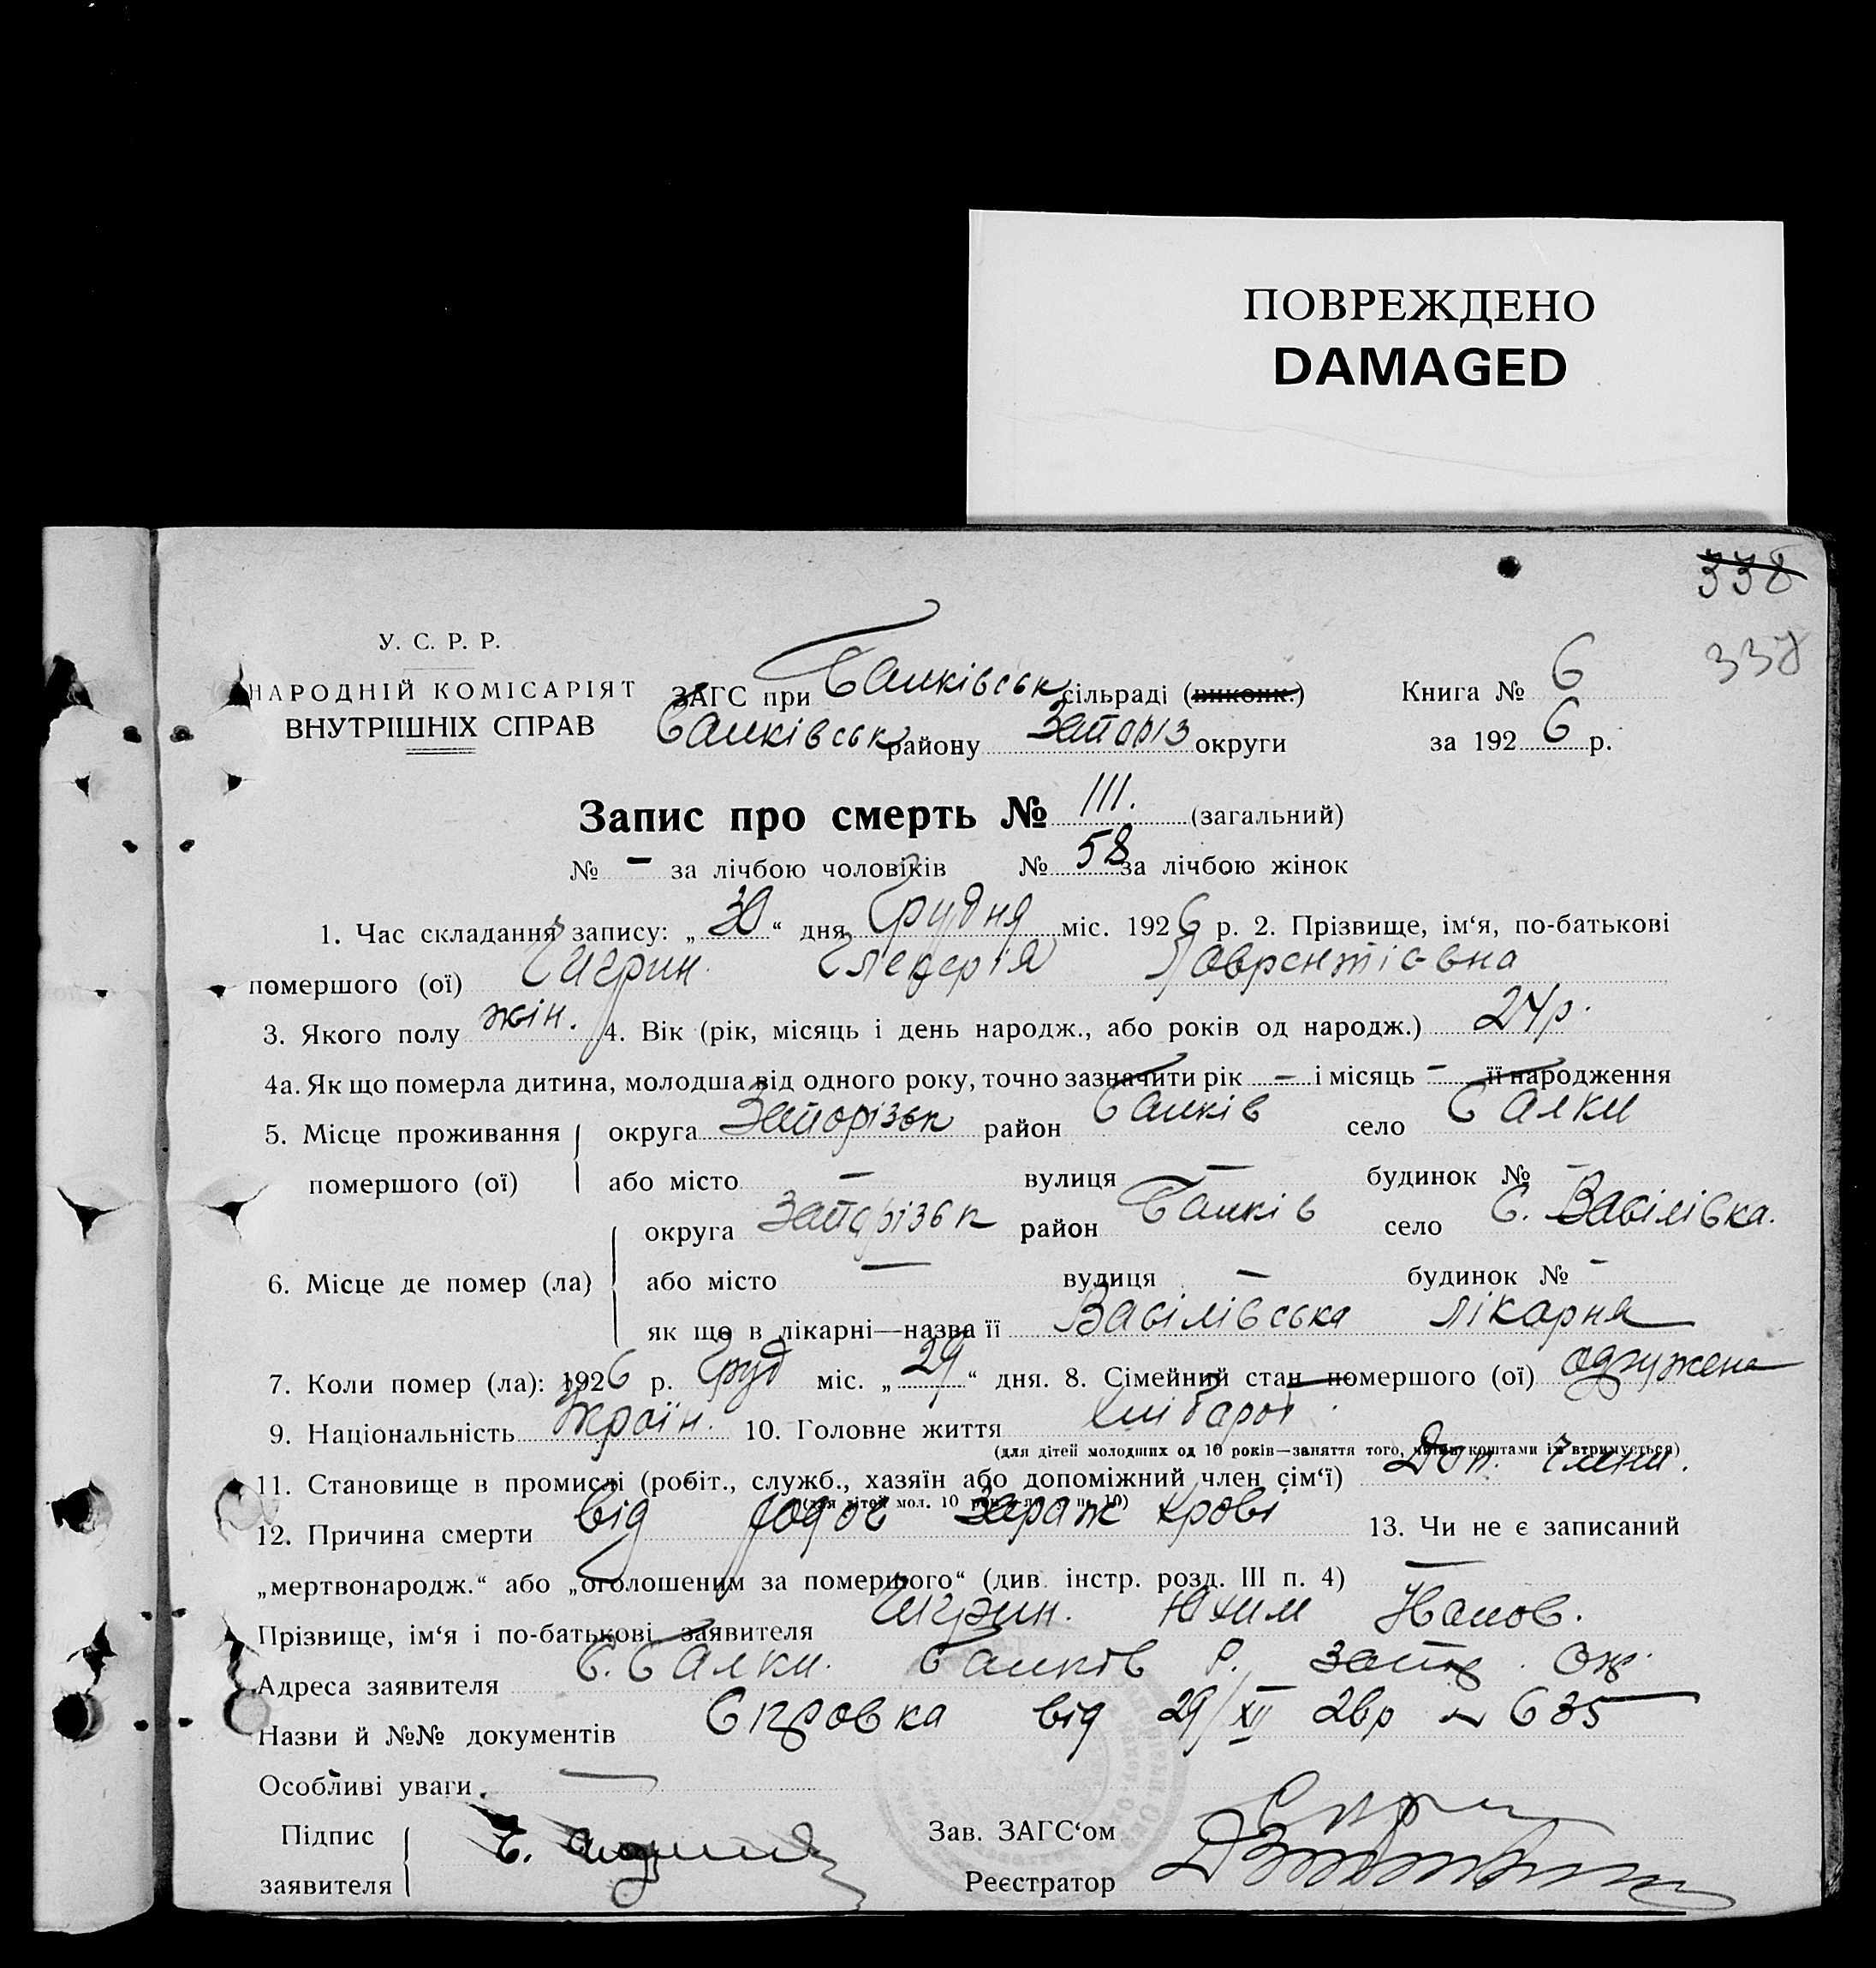 ПОВРЕЖДЕНО
DAMAGED
338
337
У. С. Р. Р.
НАРОДНІЙ КОМІСАРІЯТ
ВНУТРІШНІХ СПРАВ
ЗАГС при Балківськ сільраді (виконк.)
Балківськ району Запоріз округи
Книга № 6
за 192 6 р.
Запис про смерть № 111. (загальний)
№ – за лічбою чоловіків № 58 за лічбою жінок
1. Час складання запису: „ 30 “ дня Грудня міс. 192 6 р. 2. Прізвище, ім‘я, по-батькові
помершого (ої) Чигрин Лаврентієвна
3. Якого полу жін. 4. Вік (рік, місяць і день народж., або років од народж.) 24 р.
4а. Як що померла дитина, молодша від одного року, точно зазначити рік – і місяць – її народження
5. Місце проживання помершого (ої) округа Запорізьк район Балків село Балки
або місто – вулиця – будинок № –
6. Місце де помер (ла) округа Запорізьк район Балків село с. Васілівка.
або місто – вулиця – будинок № –
як що в лікарні—назва її Васілівська лікарня
7. Коли помер (ла): 192 6 р. Груд міс. „ 29 “ дня. 8. Сімейний стан помершого (ої) одружена
9. Національність Україн. 10. Головне життя хлібороб.
(для дітей молодших од 10 років—заняття того, чиїми коштами їх втримується)
11. Становище в промислі (робіт., служб., хазяїн або допоміжний член сім‘ї) Доп. член.
12. Причина смерти від родов Зараж крові 13. Чи не є записаний
„мертвонародж.“ або „оголошеним за помершого“ (див. інстр. розд. III п. 4) –
Прізвище, ім‘я і по-батькові заявителя Чигрин. Юхим
Адреса заявителя С. Балки. Балків Р. Запор. Окр.
Назви й №№ документів Справка від 29/XII 26р № 635
Особливі уваги. –
Підпис
заявителя
Зав. ЗАГС‘ом
Реєстратор